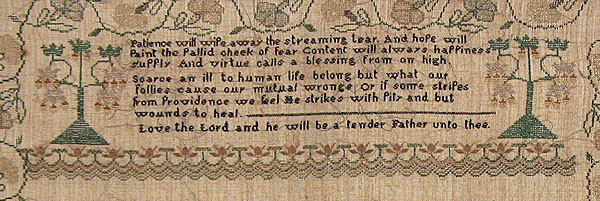 Patience will wipe away the streaming tear. And hope will
Paint the Pallid cheek of fear Content will always happiness
supply And virtue calls a blessing from on high
Scarce an ill to human life belong but what our
follies cause our mutual wrongs Or if some stripes
from Providence we feel He strikes with Pity and but
wounds to heal.
Love the Lord and he will be a tender Father unto thee.